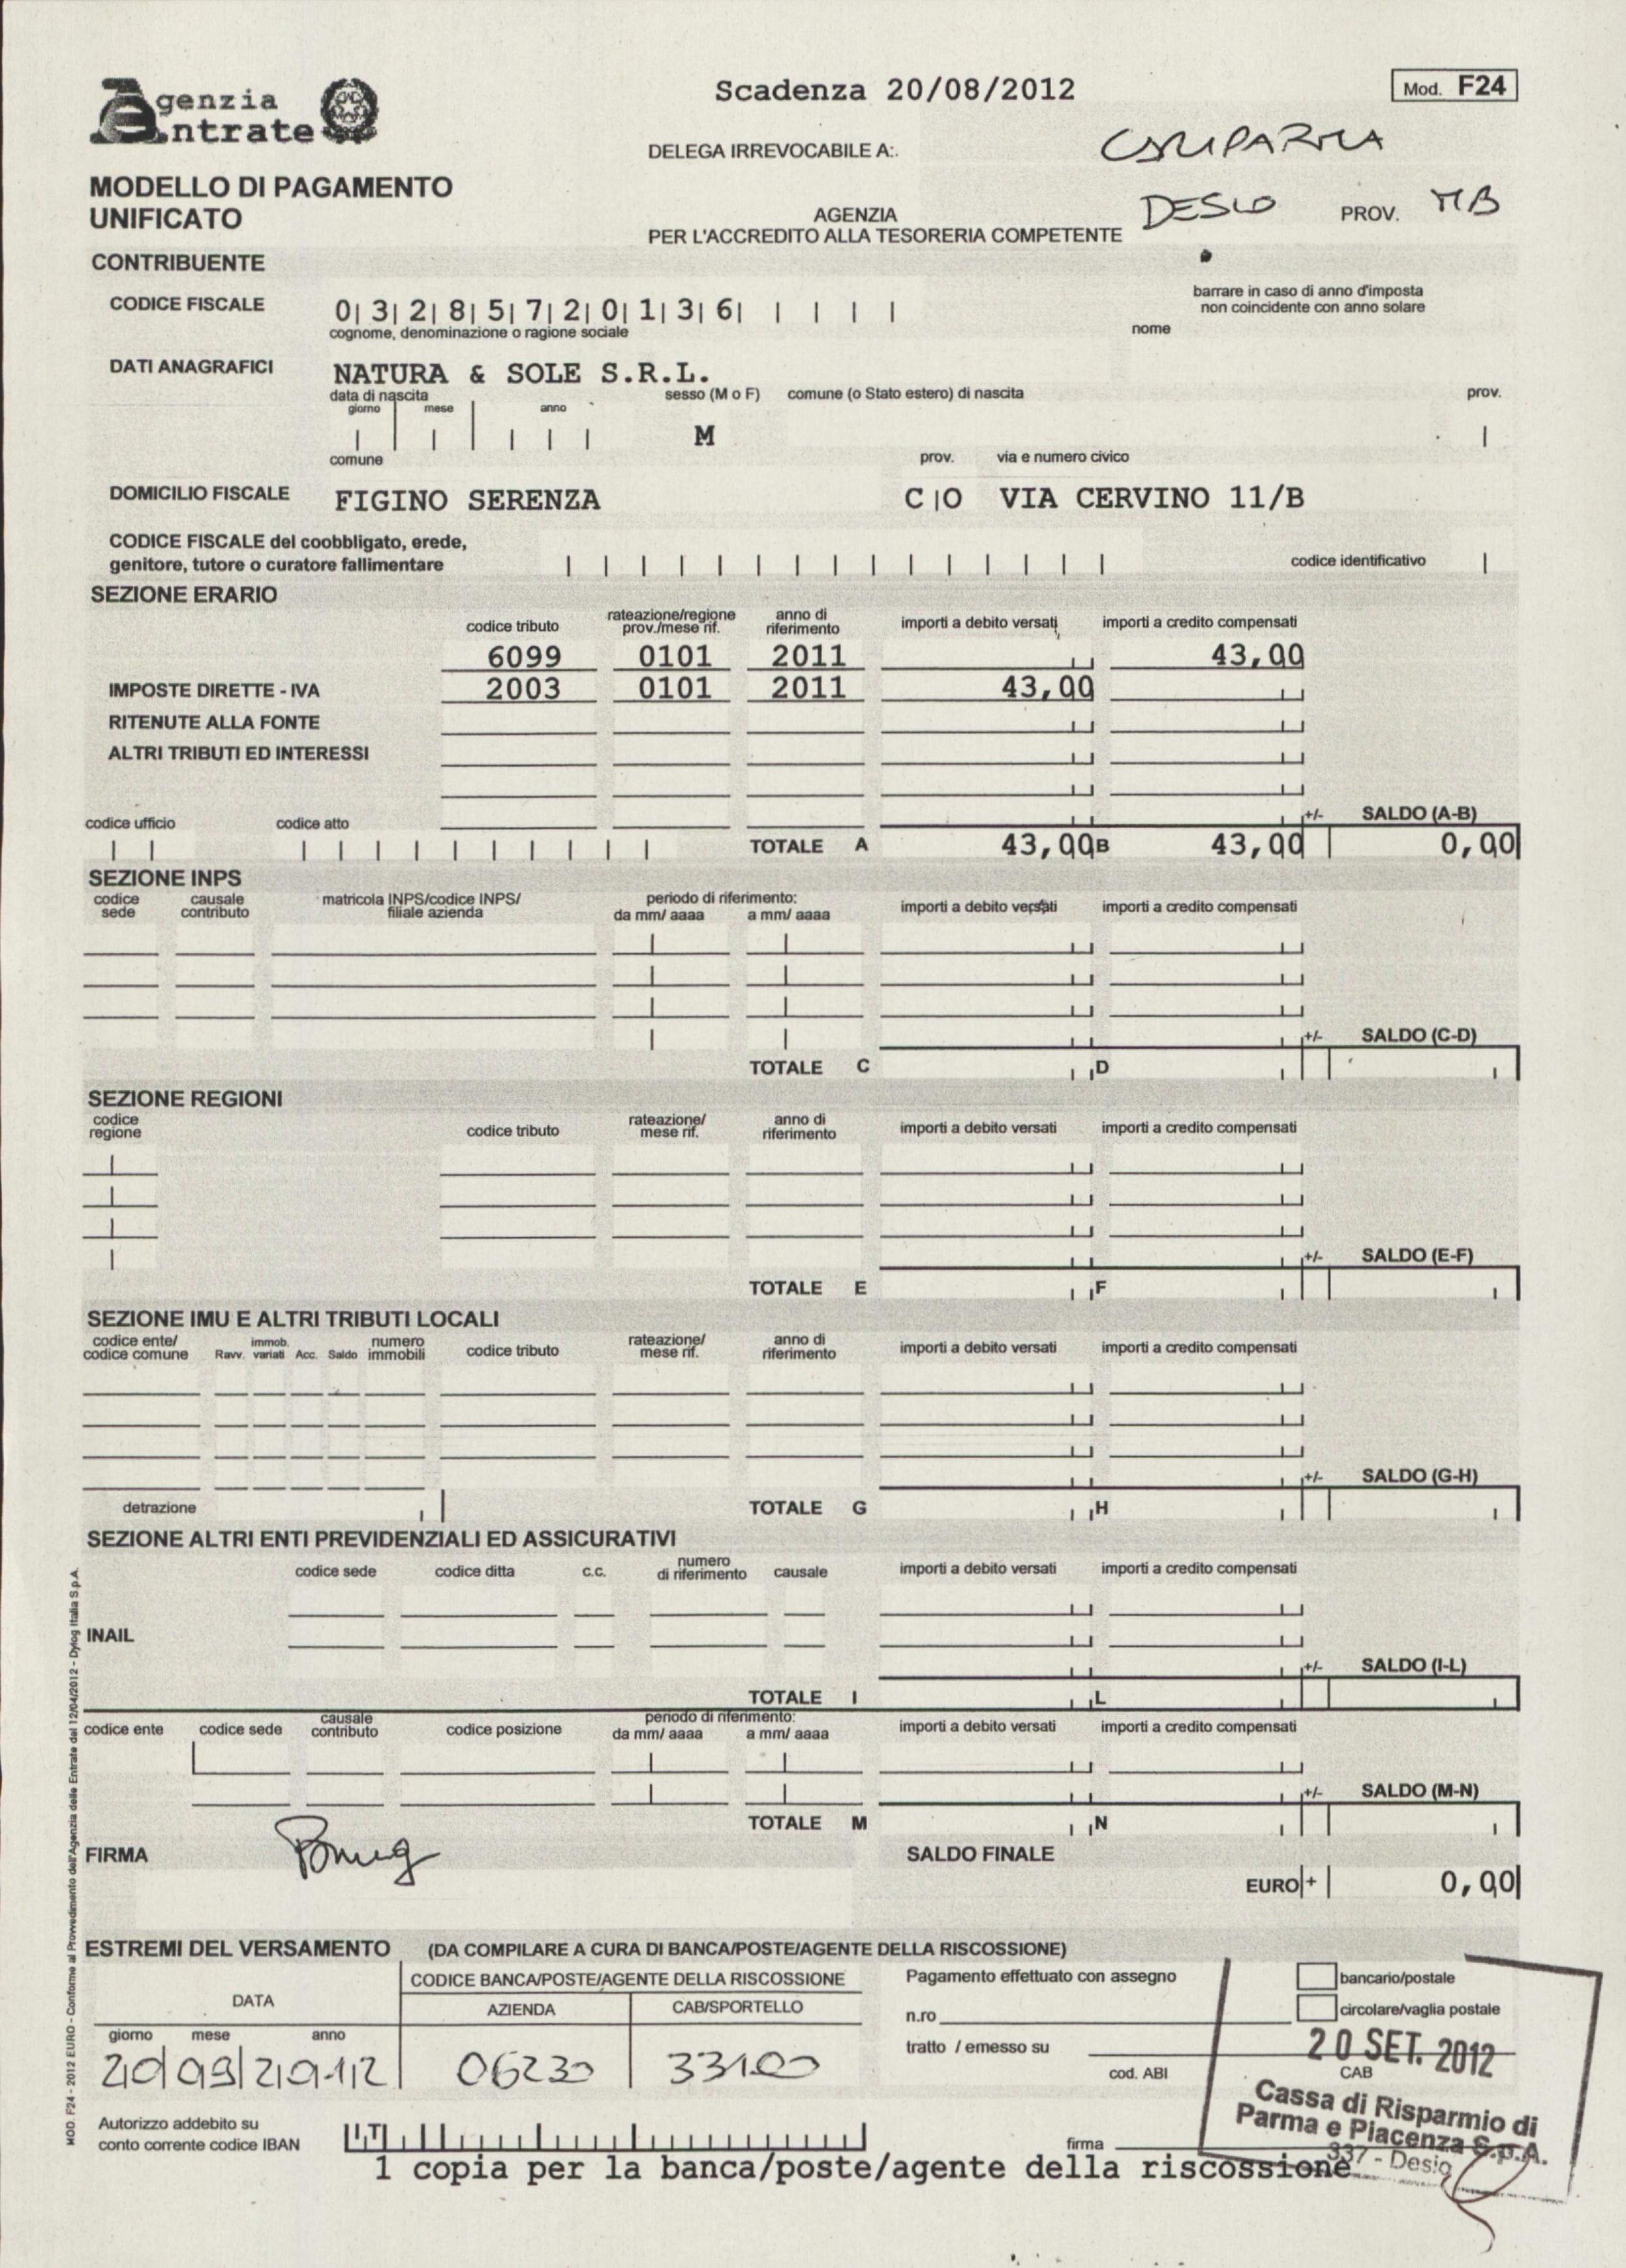 Agenzia
Entrate
Scadenza 20/08/2012
Mod. F24
DELEGA IRREVOCABILE A:.
CARIPARMA
MODELLO DI PAGAMENTO
UNIFICATO
AGENZIA
DESIO PROV. MB
PER L'ACCREDITO ALLA TESORERIA COMPETENTE
CONTRIBUENTE
barrare in caso di anno d'imposta
non coincidente con anno solare
CODICE FISCALE 0|3|2|8|5|7|2|0|1|3|6| | | | |
cognome, denominazione o ragione sociale nome
DATI ANAGRAFICI NATURA & SOLE S.R.L.
data di nascita sesso (M o F) comune (o Stato estero) di nascita prov.
giorno mese anno
M
comune prov. via e numero civico
DOMICILIO FISCALE FIGINO SERENZA C|O VIA CERVINO 11/B
CODICE FISCALE del coobbligato, erede,
genitore, tutore o curatore fallimentare codice identificativo
SEZIONE ERARIO
codice tributo rateazione/regione prov./mese rif. anno di riferimento importi a debito versati importi a credito compensati
6099 0101 2011 43,00
IMPOSTE DIRETTE - IVA 2003 0101 2011 43,00
RITENUTE ALLA FONTE
ALTRI TRIBUTI ED INTERESSI
codice ufficio codice atto +/- SALDO (A-B)
TOTALE A 43,00 B 43,00 0,00
SEZIONE INPS
codice sede causale contributo matricola INPS/codice INPS/ filiale azienda periodo di riferimento: da mm/ aaaa a mm/ aaaa importi a debito versati importi a credito compensati
+/- SALDO (C-D)
TOTALE C D
SEZIONE REGIONI
codice regione codice tributo rateazione/ mese rif. anno di riferimento importi a debito versati importi a credito compensati
+/- SALDO (E-F)
TOTALE E F
SEZIONE IMU E ALTRI TRIBUTI LOCALI
codice ente/ codice comune Ravv. immob. variati Acc. Saldo numero immobili codice tributo rateazione/ mese rif. anno di riferimento importi a debito versati importi a credito compensati
+/- SALDO (G-H)
detrazione TOTALE G H
SEZIONE ALTRI ENTI PREVIDENZIALI ED ASSICURATIVI
codice sede codice ditta c.c. numero di riferimento causale importi a debito versati importi a credito compensati
INAIL
+/- SALDO (I-L)
TOTALE I L
codice ente codice sede causale contributo codice posizione periodo di riferimento: da mm/ aaaa a mm/ aaaa importi a debito versati importi a credito compensati
+/- SALDO (M-N)
TOTALE M N
FIRMA SALDO FINALE
EURO + 0,00
ESTREMI DEL VERSAMENTO (DA COMPILARE A CURA DI BANCA/POSTE/AGENTE DELLA RISCOSSIONE)
DATA CODICE BANCA/POSTE/AGENTE DELLA RISCOSSIONE Pagamento effettuato con assegno bancario/postale
AZIENDA CAB/SPORTELLO n.ro circolare/vaglia postale
giorno mese anno tratto / emesso su
20 09 2012 06230 33100
20 SET. 2012
cod. ABI CAB
Cassa di Risparmio di
Parma e Piacenza S.p.A.
337 - Desio
Autorizzo addebito su
conto corrente codice IBAN IT firma
1 copia per la banca/poste/agente della riscossione
MOD. F24 - 2012 EURO - Conforme al Provvedimento dell'Agenzia delle Entrate del 12/04/2012 - Dylog Italia S.p.A.